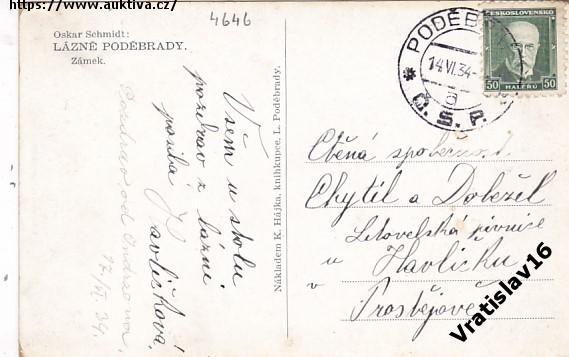 https://www.auktiva.cz/
4646
Oskar Schmidt:
LÁZNĚ PODĚBRADY.
Zámek.
Všem u stolu
pozdrav z lázní
posílá J.
Havlíčková.
Pozdrav od
17/VI. 34.
Nákladem K. Hájka, knihkupce, L. Poděbrady.
PODĚB
14.VI.34
a
Č.S.P.
ČESKOSLOVENSKO
50 HALÉŘŮ 50
Ctěná společnost
Chytil a Doležel
Litovelská pivnice
u Havlíčku
v Prostějově
Vratislav16